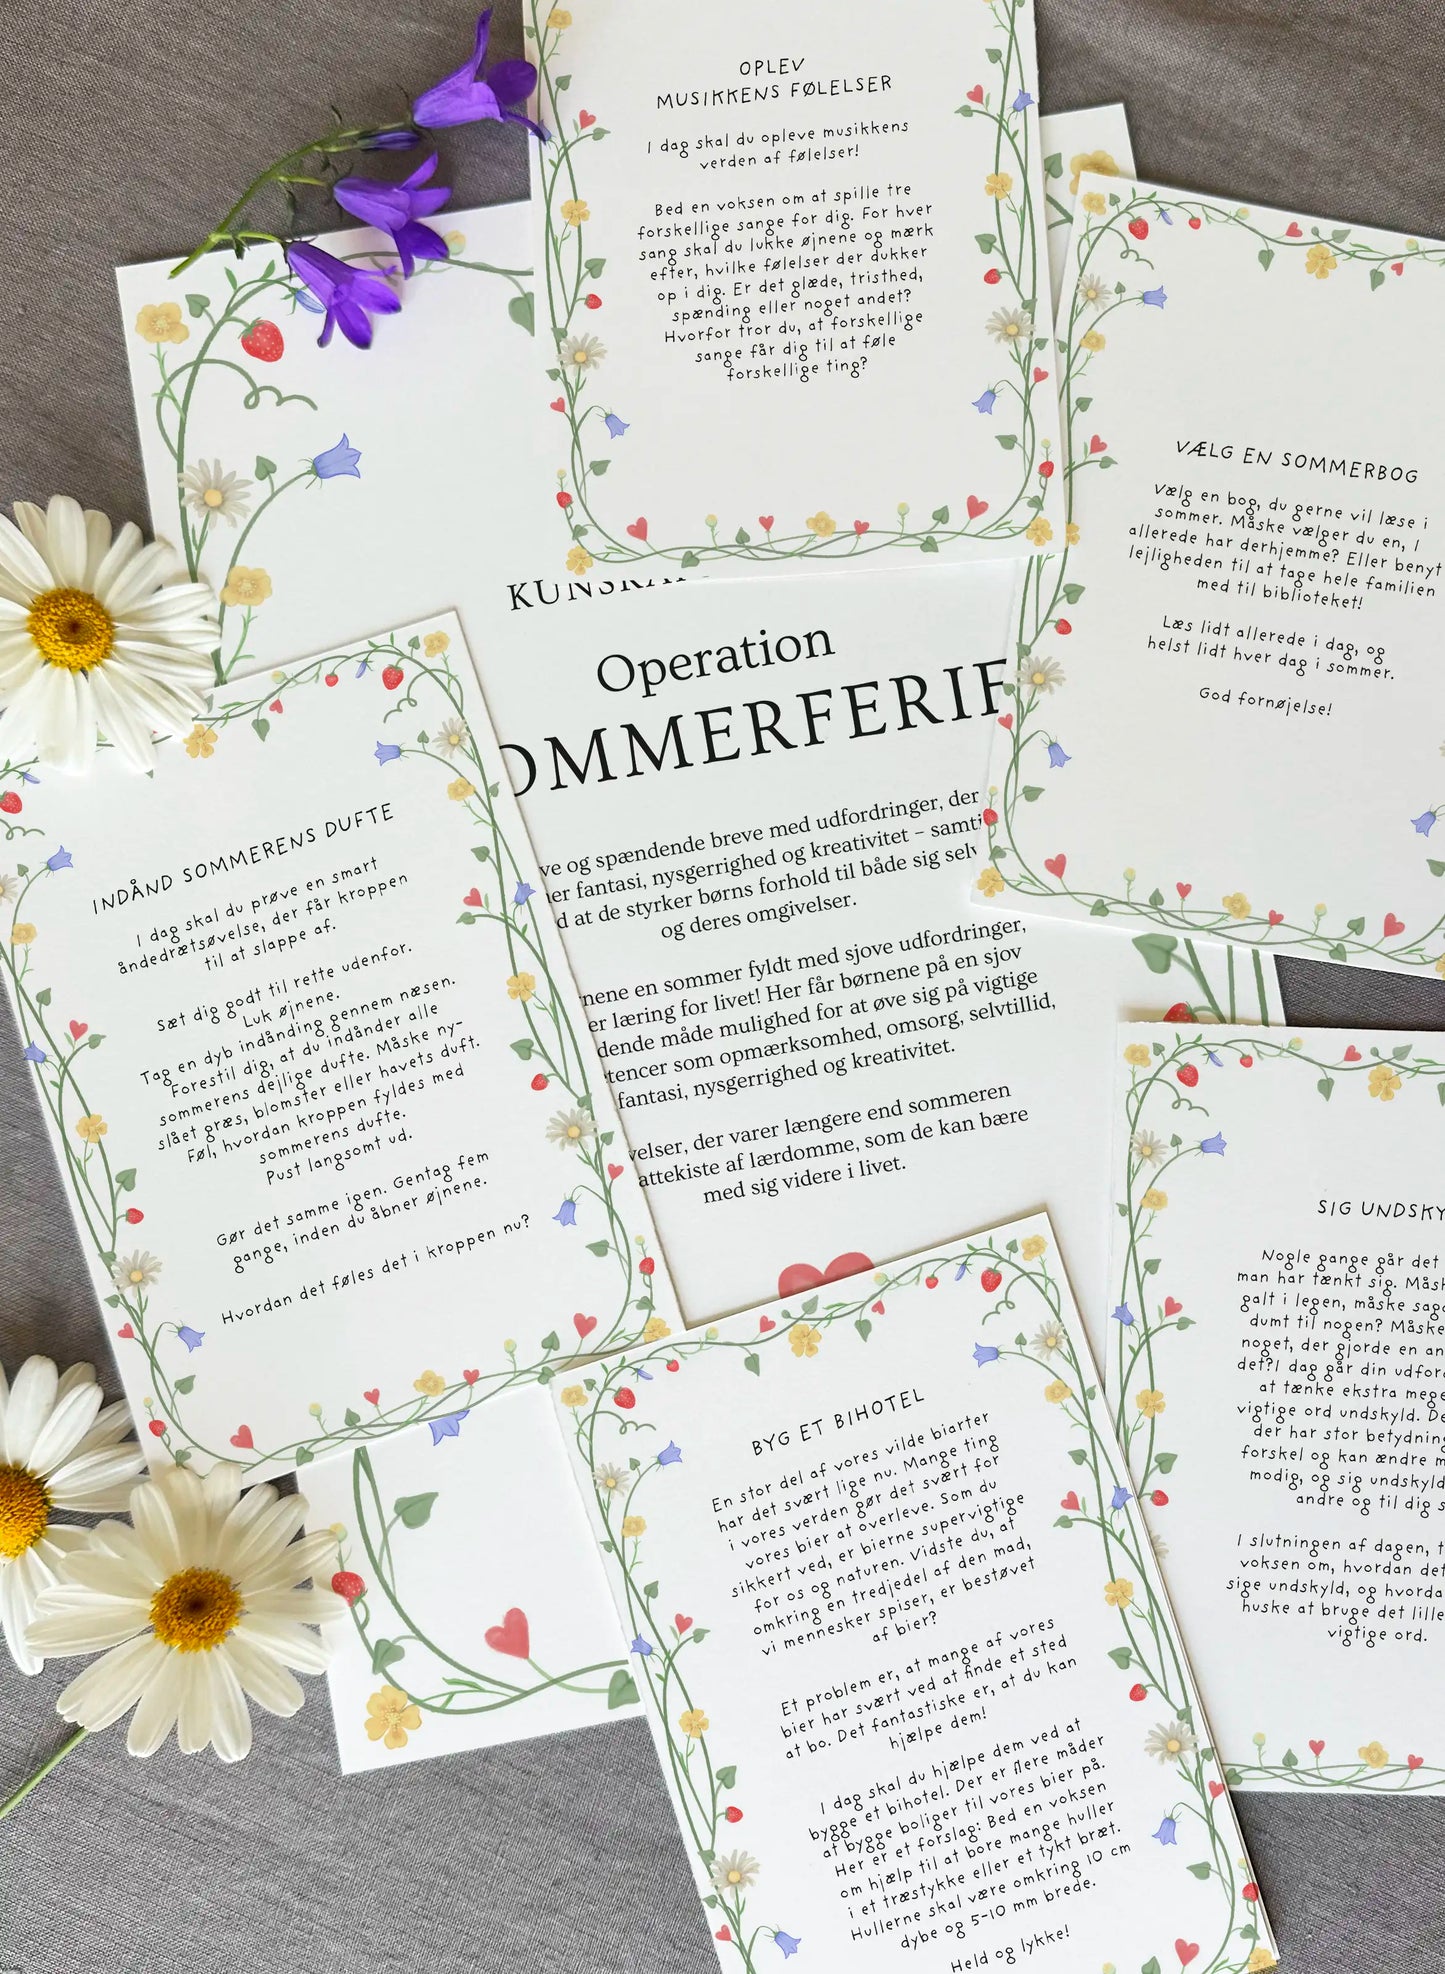 OPLEV
MUSIKKENS FØLELSER
I dag skal du opleve musikkens
verden af følelser!
Bed en voksen om at spille tre
forskellige sange for dig. For hver
sang skal du lukke øjnene og mærk
efter, hvilke følelser der dukker
op i dig. Er det glæde, tristhed,
spænding eller noget andet?
Hvorfor tror du, at forskellige
sange får dig til at føle
forskellige ting?
VÆLG EN SOMMERBOG
Vælg en bog, du gerne vil læse i
sommer. Måske vælger du en, I
allerede har derhjemme? Eller benyt
lejligheden til at tage hele familien
med til biblioteket!
Læs lidt allerede i dag, og
helst lidt hver dag i sommer.
God fornøjelse!
Operation
OMMERFERIE
ve og spændende breve med udfordringer, der
er fantasi, nysgerrighed og kreativitet – samti
d at de styrker børns forhold til både sig selv
og deres omgivelser.
nene en sommer fyldt med sjove udfordringer,
er læring for livet! Her får børnene på en sjov
dende måde mulighed for at øve sig på vigtige
tencer som opmærksomhed, omsorg, selvtillid,
fantasi, nysgerrighed og kreativitet.
velser, der varer længere end sommeren
attekiste af lærdomme, som de kan bære
med sig videre i livet.
INDÅND SOMMERENS DUFTE
I dag skal du prøve en smart
åndedrætsøvelse, der får kroppen
til at slappe af.
Sæt dig godt til rette udenfor.
Luk øjnene.
Tag en dyb indånding gennem næsen.
Forestil dig, at du indånder alle
sommerens dejlige dufte. Måske ny-
slået græs, blomster eller havets duft.
Føl, hvordan kroppen fyldes med
sommerens dufte.
Pust langsomt ud.
Gør det samme igen. Gentag fem
gange, inden du åbner øjnene.
Hvordan det føles det i kroppen nu?
BYG ET BIHOTEL
En stor del af vores vilde biarter
har det svært lige nu. Mange ting
i vores verden gør det svært for
vores bier at overleve. Som du
sikkert ved, er bierne supervigtige
for os og naturen. Vidste du, at
omkring en tredjedel af den mad,
vi mennesker spiser, er bestøvet
af bier?
Et problem er, at mange af vores
bier har svært ved at finde et sted
at bo. Det fantastiske er, at du kan
hjælpe dem!
I dag skal du hjælpe dem ved at
bygge et bihotel. Der er flere måder
at bygge boliger til vores bier på.
Her er et forslag: Bed en voksen
om hjælp til at bore mange huller
i et træstykke eller et tykt bræt.
Hullerne skal være omkring 10 cm
dybe og 5-10 mm brede.
Held og lykke!
SIG UNDSKY
Nogle gange går det
man har tænkt sig. Måsk
galt i legen, måske sagd
dumt til nogen? Måske
noget, der gjorde en an
det?I dag går din udford
at tænke ekstra mege
vigtige ord undskyld. De
der har stor betydning
forskel og kan ændre m
modig, og sig undskyld
andre og til dig s
I slutningen af dagen, t
voksen om, hvordan det
sige undskyld, og hvorda
huske at bruge det lille
vigtige ord.